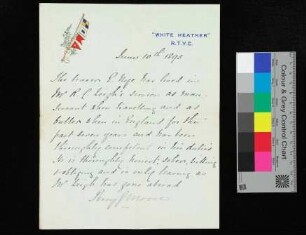 "WHITE HEATHER"
R.T.Y.C.
June 10th 1895
The bearer E Nye has lived in
Mr R. C. Leigh's service as man
servant when travelling and as
butler when in England for the
past seven years and has been
thoroughly competent in his duties
He is thoroughly honest, sober, willing
& obliging and is only leaving as
Mr Leigh has gone abroad
Colour & Grey Control Chart